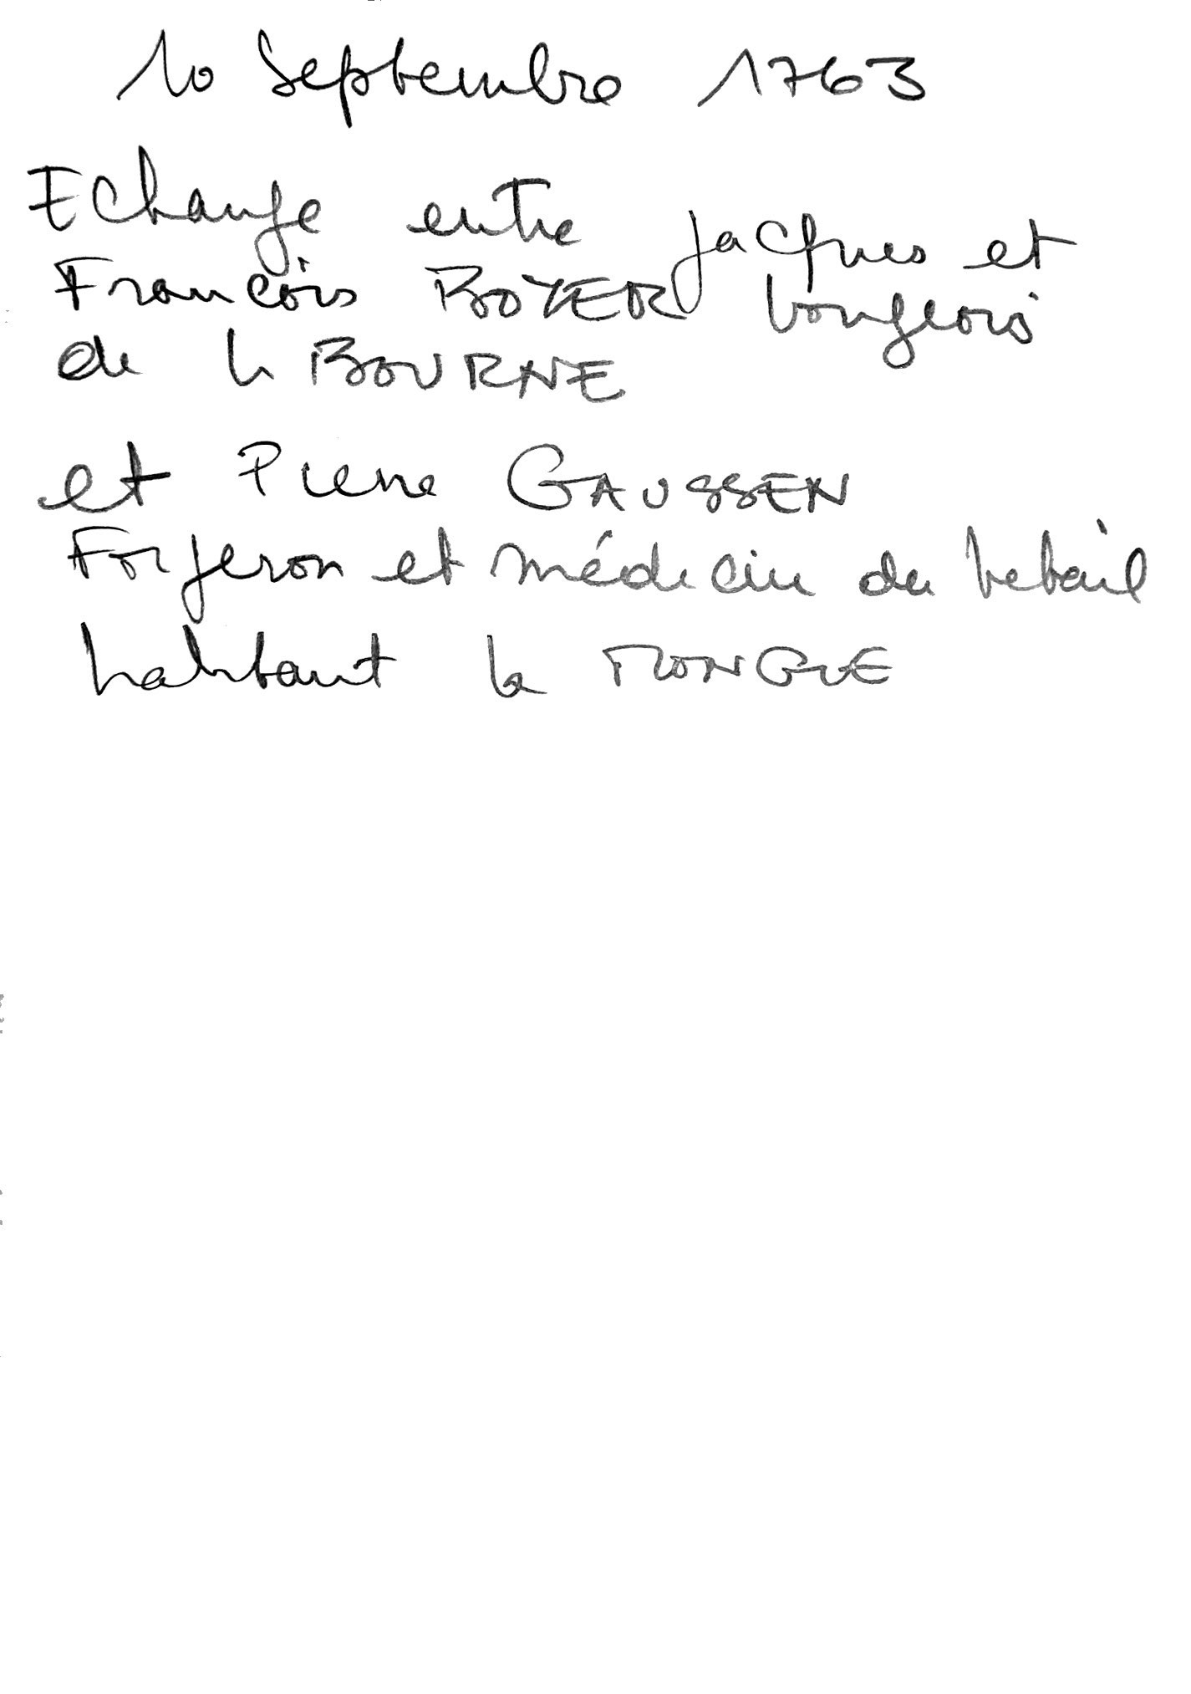 10 Septembre 1763
Echange entre Jacques et
François BOYER bourgeois
de la BOURNE
et Pierre GAUSSEN
Forgeron et médecin du betail
habitant la MONGUE